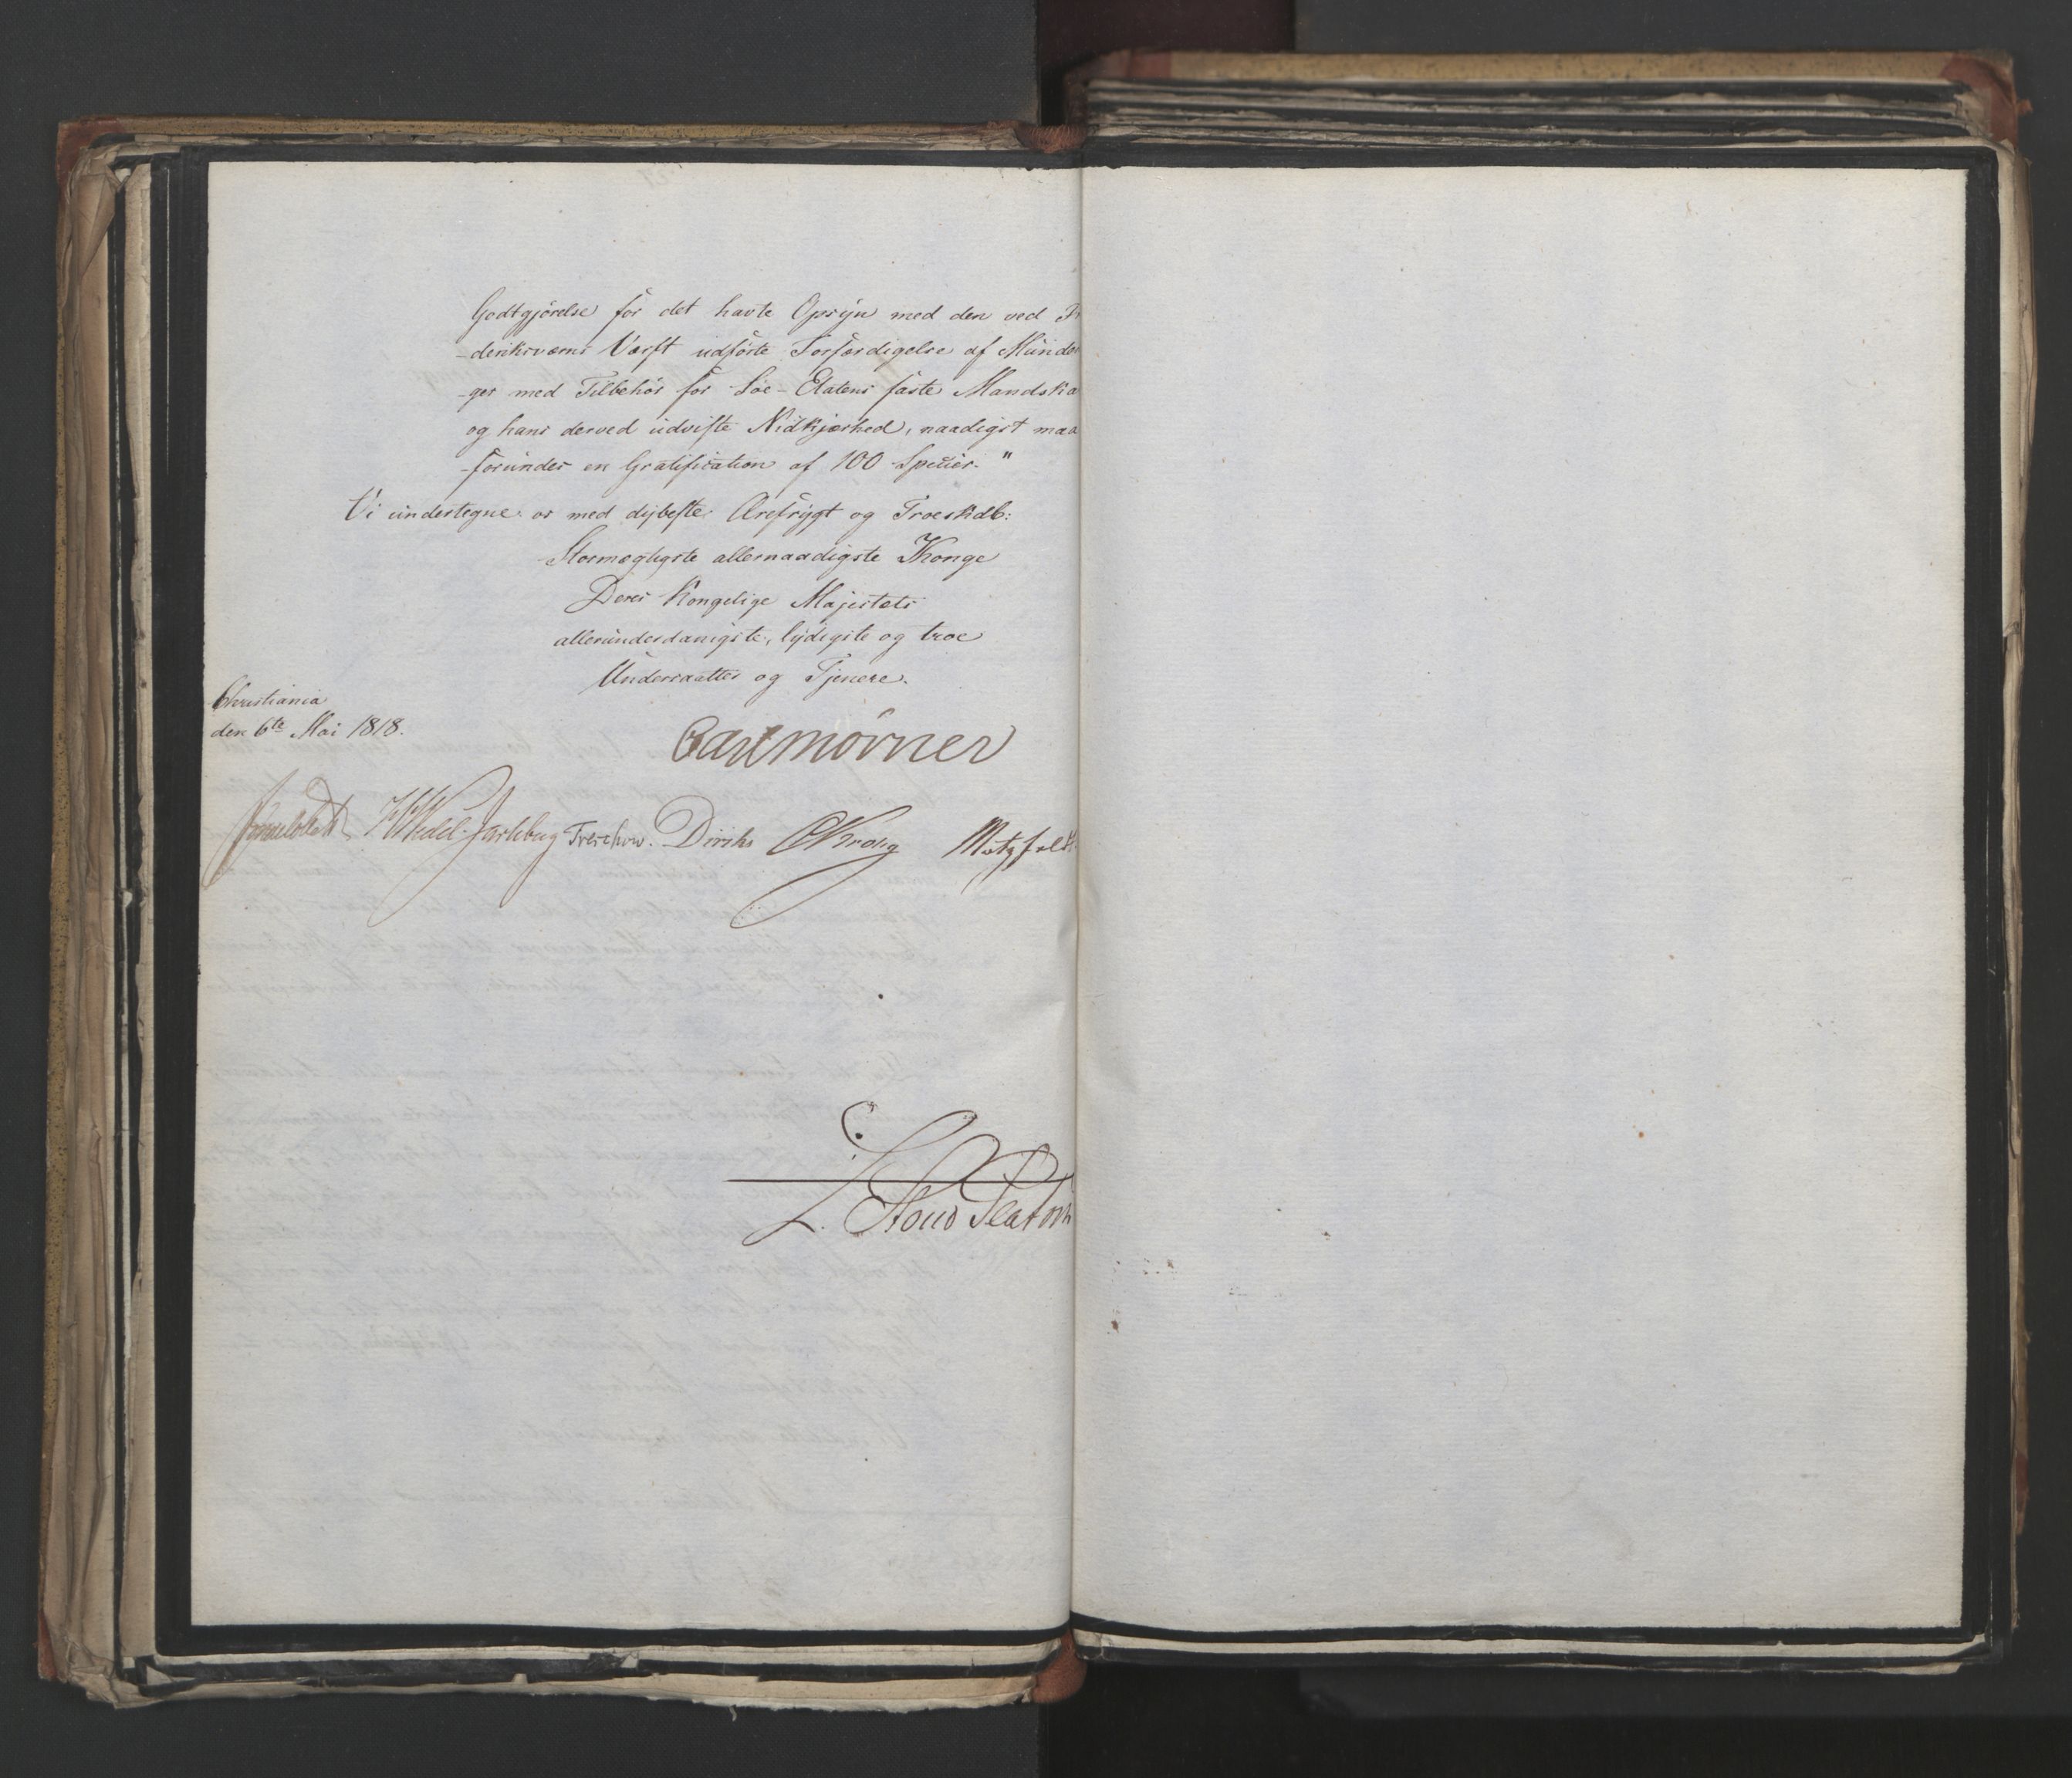 Godtgjörelse for det havte Opsÿn med den ved Fr
-deriksværns Værft udförte Forfærdigelse af Munde
-ger med Tilbehör for Söe-Etatens faste Mandska
og hans derved udviste Nidkjærhed, naadigst maa
-forundes en Gratification af 100 Specier."
Vi undertegne os med dybeste Ærefrygt og Troeskab:
Stormægtigste allernaadigste Konge
Deres Kongelige Majestæts
allerunderdanigste, lydigste og troe
Undersaatter og Tjenere.
Christiania
den 6te Mai 1818.
Carl Mörner
Sommelhielm HWedel-Jarlsberg Treschow. Diriks CKrohg Motzfeldt
L. Stoud Platou